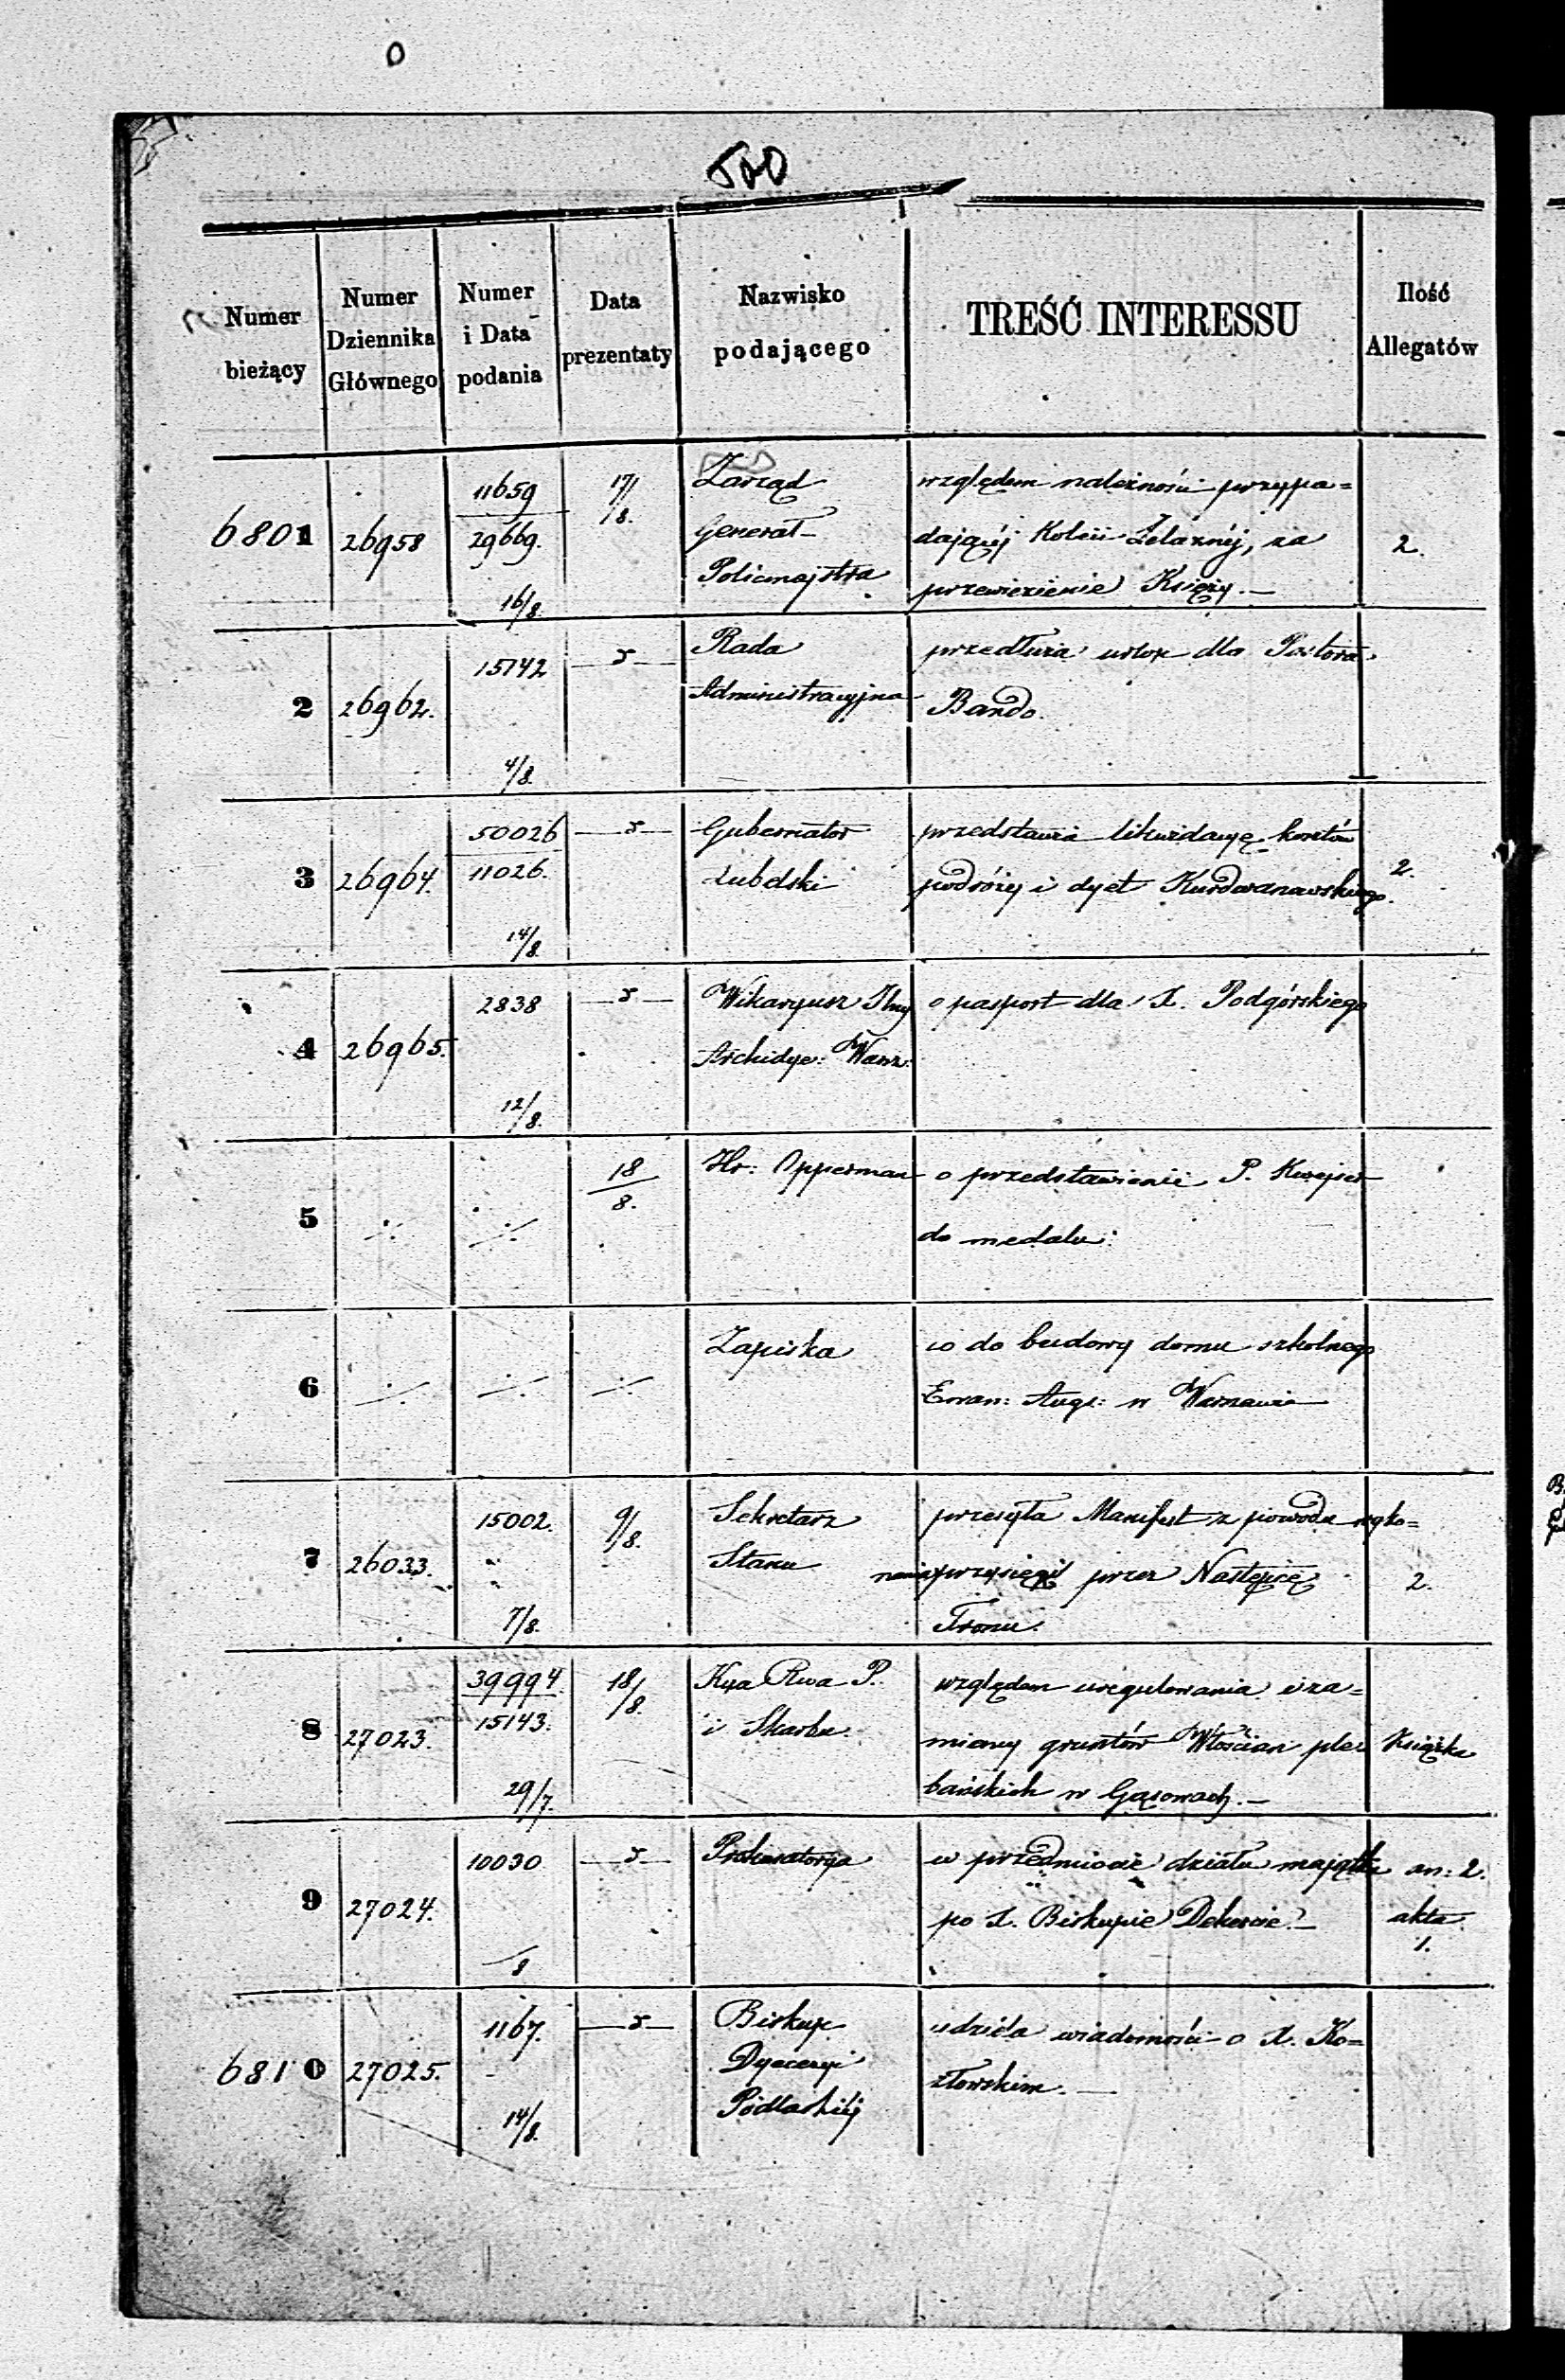 500
Numer bieżący
Numer Dziennika Głównego
Numer i Data podania
Data prezentaty
Nazwisko podającego
TREŚĆ INTERESSU
Ilość Allegatów
6801
26958
11659
29669.
16/8.
17/8.
Zarząd
Generał-
Policmajstra
względem należności przypa=
dającéj Kolei Żelaznéj, za
przewiezienie Księży.—
2.
2
26962.
15142
4/8.
Rada
Administracyjna
przedłuża urlop dla Pastora
Bando.
3
26964.
50026
11026.
14/8.
Gubernator
Lubelski
przedstawia likwidacyę kosztów
podróży i dyet Kurdwanowskiego.
2.
4
26965.
2838
12/8.
Wikaryusz
Archidye: Warsz:
o pasport dla X. Podgórskiego
5
18/8.
Hr: Opperman
o przedstawienie P.
do medalu.
6
Zapiska
co do budowy domu szkolnego
Ewan: Augs: w Warszawie
7
26033.
15002.
7/8.
9/8.
Sekretarz
Stanu
przesyła Manifest z powodu wyko=
nania przysięgi przez Następcę
Tronu.
2.
8
27023.
39994.
15143.
29/7.
18/8.
Kya Rwa P.
i Skarbu
względem uregulowania i za=
miany gruntów Włościan ple=
bańskich w Gąsowach.—
Książka
9
27024.
10030
8
Prokuratorya
w przedmiocie działu majątku
po X. Biskupie Dekercie.—
an: 2.
akta
1.
6810
27025.
1167.
14/8.
Biskup
Dyecezyi
Podlaskiéj
udziela wiadomości o X. Ko=
złowskim.—